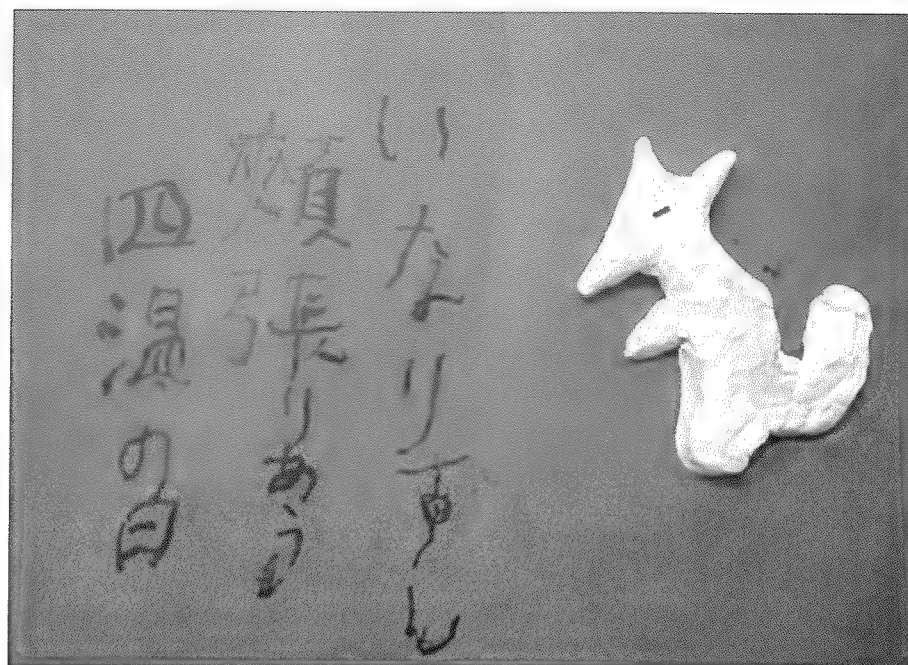 いなりすし
頬張りあうも
四温の日